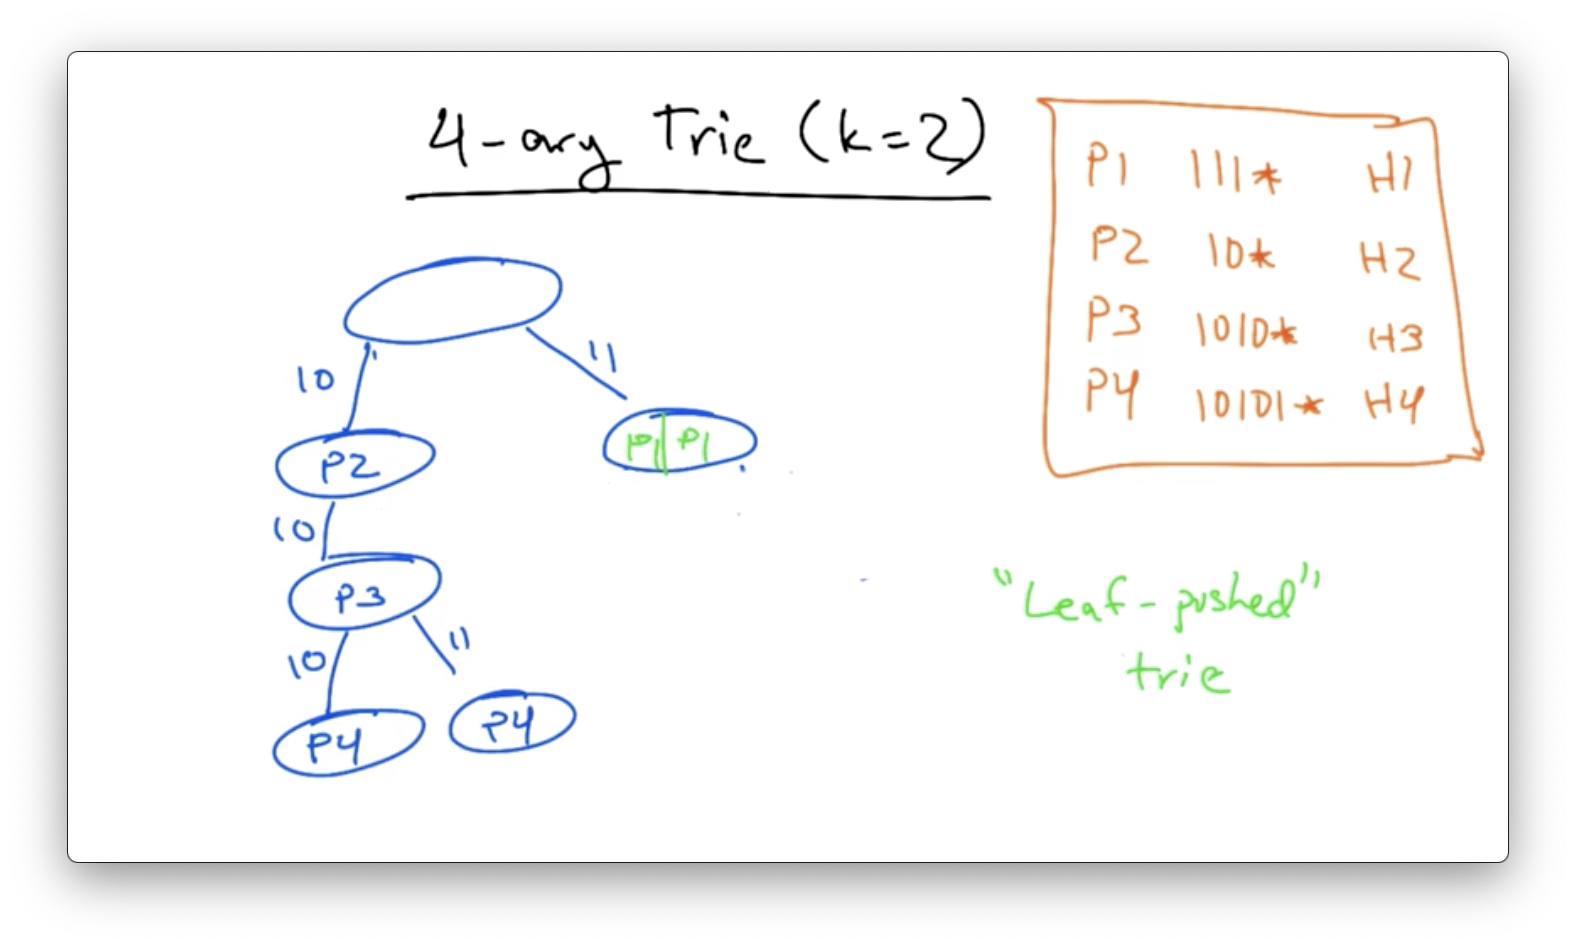 4-ary Trie (k=2)
P1 111* H1
P2 10* H2
P3 1010* H3
P4 10101* H4
10
11
P2
P1 P1
10
P3
10
11
P4
P4
"Leaf-pushed"
trie